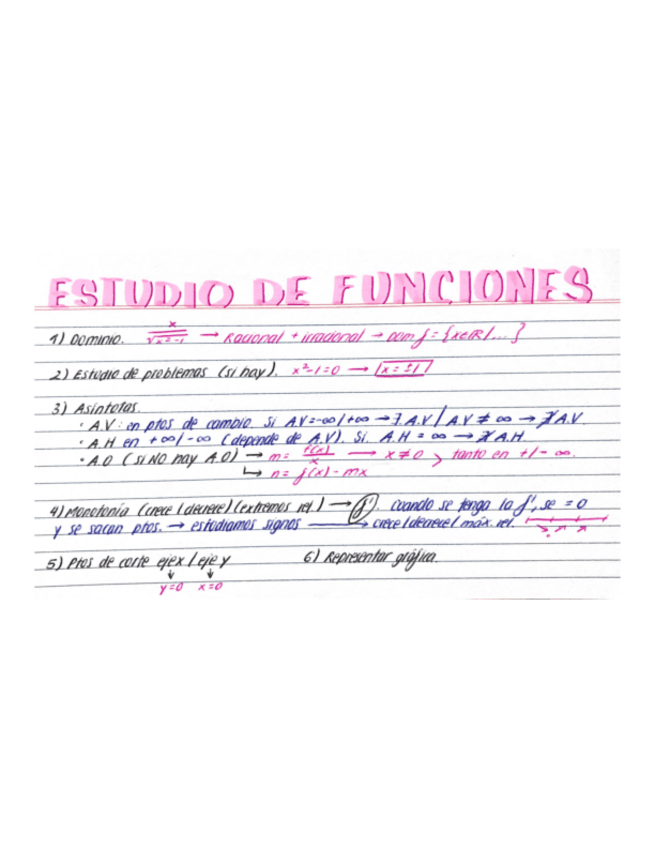 ESTUDIO DE FUNCIONES
1) Dominio. x/√x²-1 → Racional + irracional → Dom f = {x∈ℝ/...}
2) Estudio de problemas (si hay). x²-1=0 → x = ±1
3) Asíntotas.
· A.V: en ptos de cambio. Si A.V=-∞/+∞ → ∃ A.V / A.V ≠ ∞ → ∄ A.V.
· A.H en +∞/-∞ (depende de A.V). Si A.H = ∞ → ∄ A.H.
· A.O (si NO hay A.O) → m= f(x)/x → x≠0 > tanto en +/- ∞.
↳ n = f(x) - mx
4) Monotonía (crece/decrece)(extremos rel.) → f'. Cuando se tenga la f', se = 0
y se sacan ptos. → estudiamos signos → crece/decrece/máx. rel.
5) Ptos de corte eje x / eje y 6) Representar gráfica.
↓ ↓
y=0 x=0